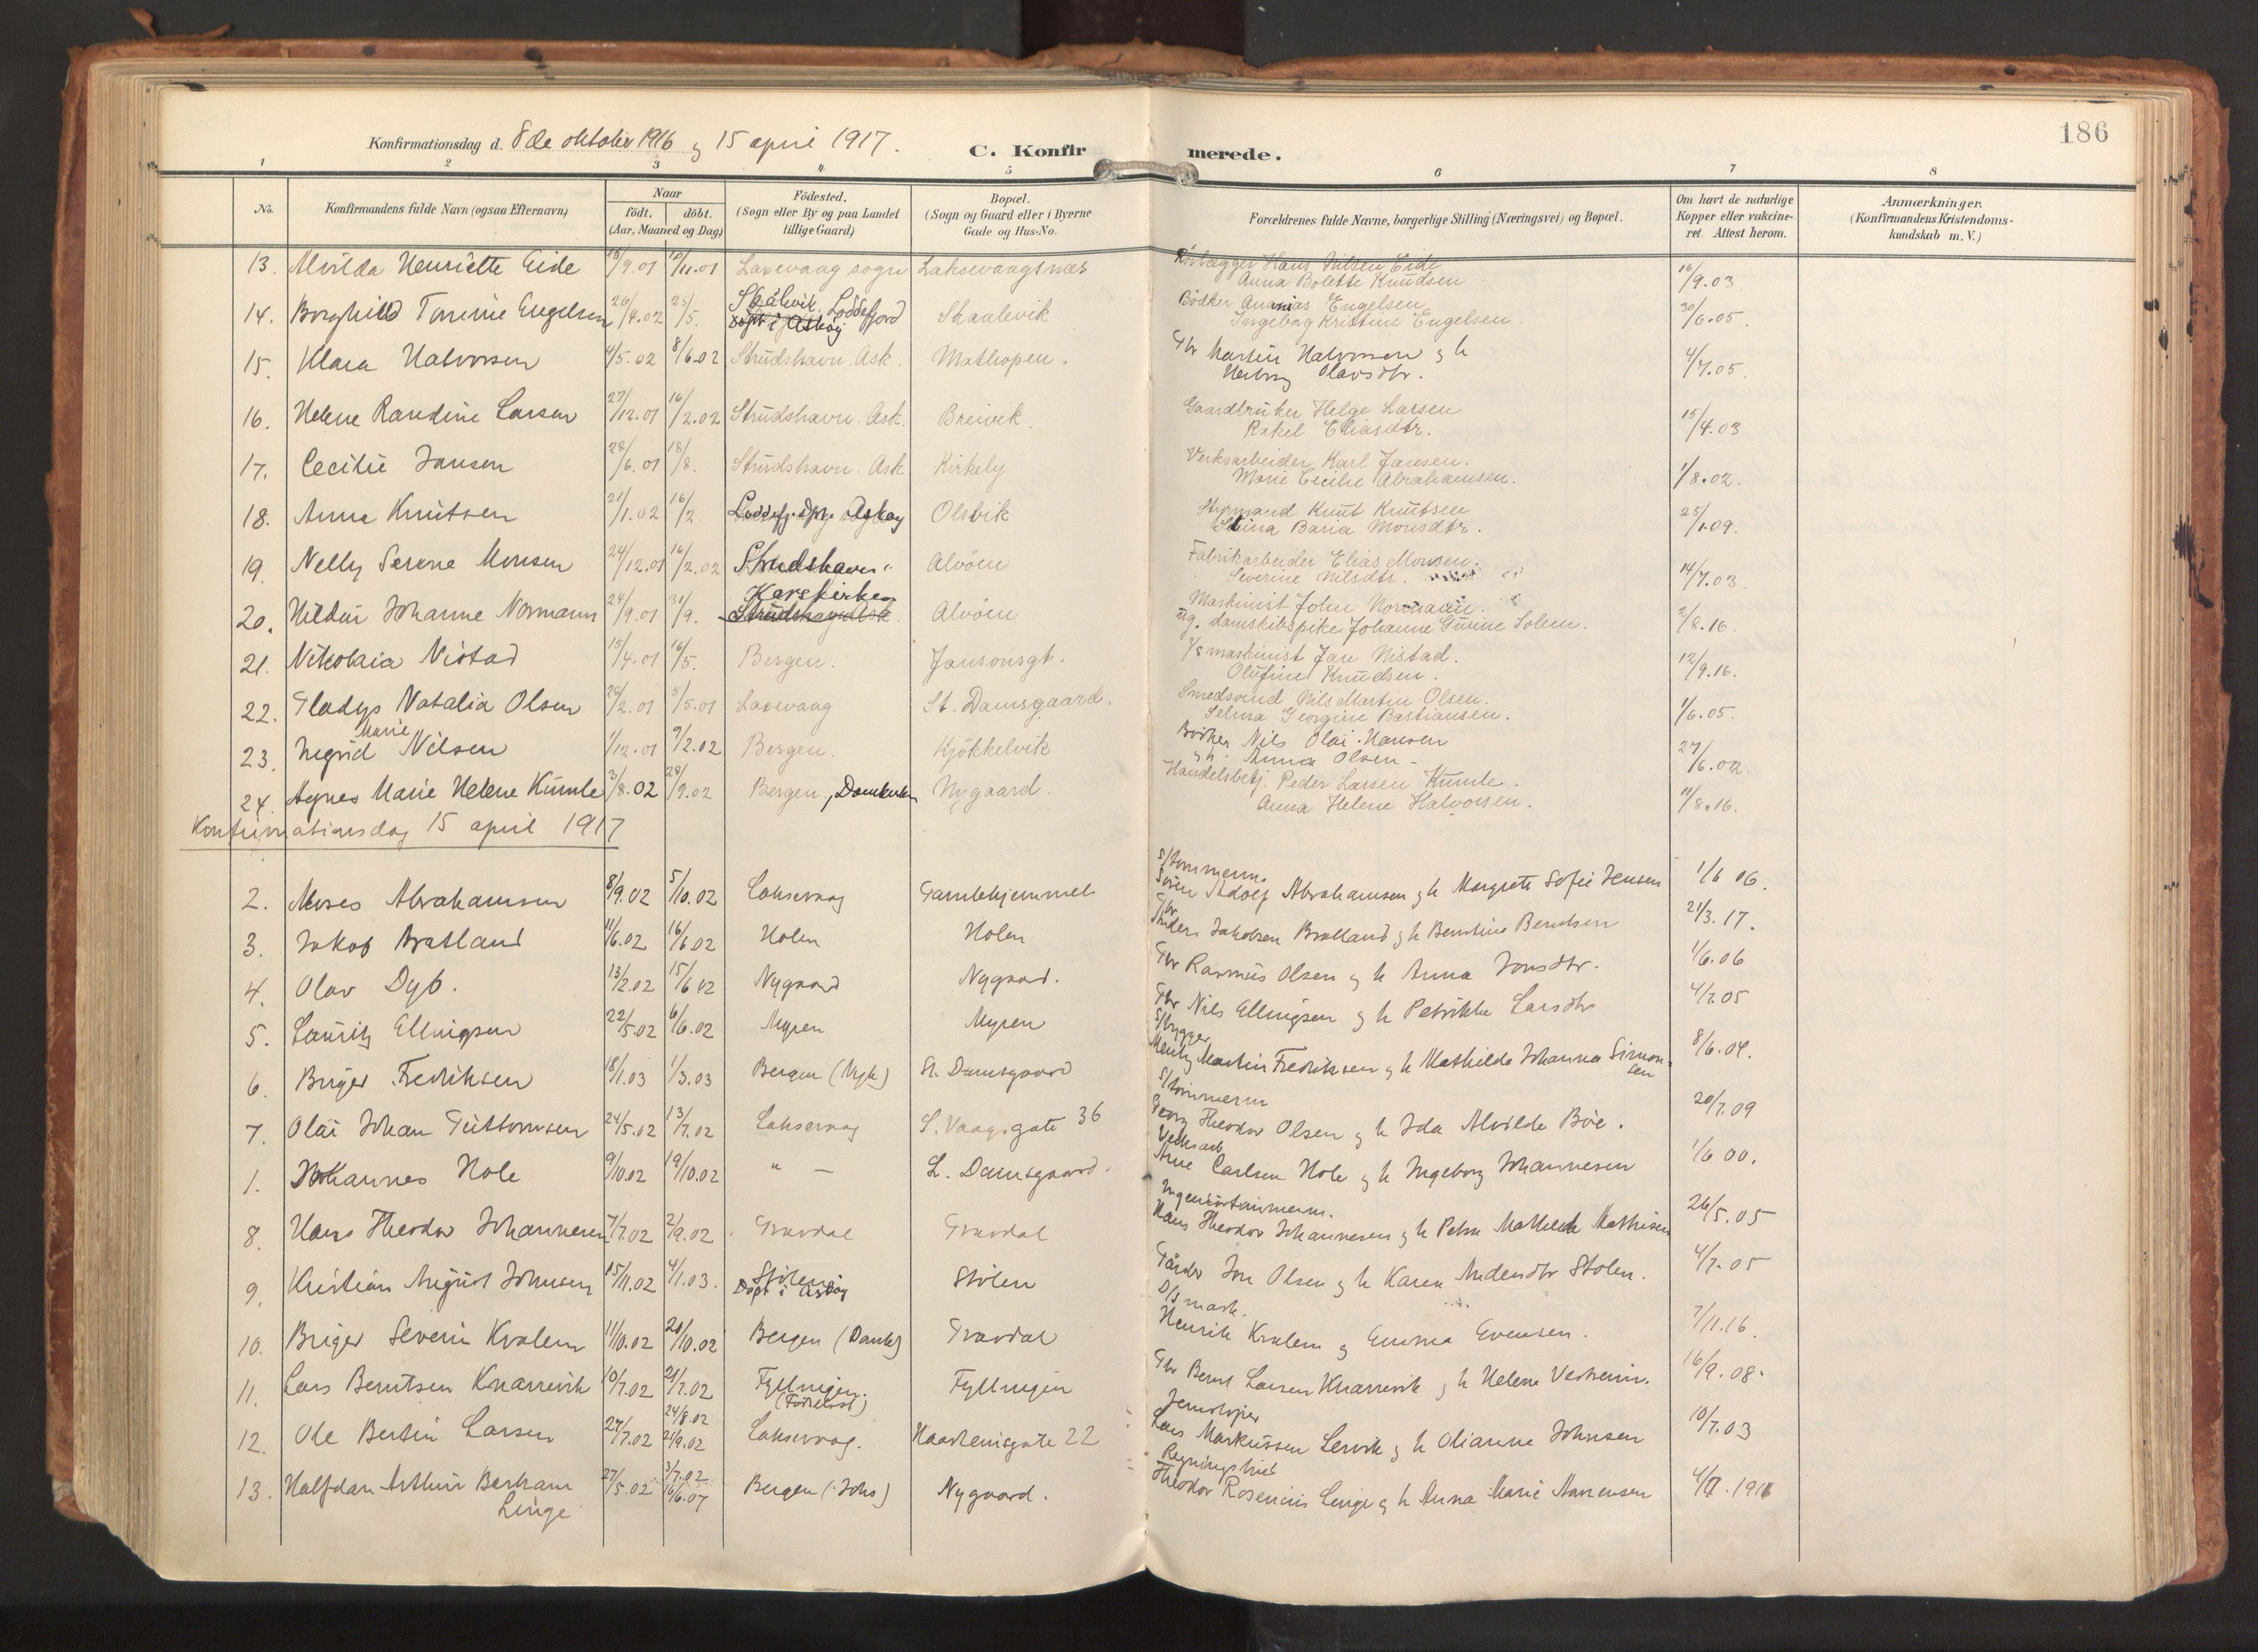 186
Konfirmationsdag d. 8de oktober 1916 og 15 april 1917.
C. Konfirmerede.
1 2 3 4 5 6 7 8
No.
Konfirmandens fulde Navn (ogsaa Efternavn)
Naar
födt. döbt.
(Aar, Maaned og Dag)
Födested.
(Sogn eller By og paa Landet
tillige Gaard)
Bopæl.
(Sogn og Gaard eller i Byerne
Gade og Hus-No.
Forældrenes fulde Navne, borgerlige Stilling (Næringsvei) og Bopæl.
Om havt de naturlige
Kopper eller vakcine-
ret. Attest herom.
Anmærkninger.
(Konfirmandens Kristendoms-
kundskab m. V.)
13. Alvilda Henriette Eide 18/9.01 10/11.01 Laxevaag sogn Laksevaagsnæs Rørlægger Hans Nilsen Eide 16/9.03
Anna Bolette Knudsen
14. Borghild Tomine Engelsen 26/4.02 25/5. Skålevik, Loddefjord Skaalevik Bödker Ananias Engelsen 30/6.05.
Døpt i Askøy Ingeborg Kristine Engelsen
15. Klara Halvorsen 4/5.02 8/6.02 Strudshavn. Ask. Mathopen. Gbr Martin Halvorsen og h 4/7.05.
Herborg Olavsdtr.
16. Helene Randine Larsen 27/12.01 16/2.02 Strudshavn. Ask. Breivik. Gaardbruker Helge Larsen 15/4.03
Rakel Eliasdtr.
17. Cecilie Jansen 28/6.01 18/8. Strudshavn. Ask Kirkely Verksarbeider Karl Jansen. 1/8.02.
Marie Cecilie Abrahamsen.
18. Anna Knutsen 21/1.02 16/2 Askøy Olsvik Styrmand Knut Knutsen 25/1.09.
Stina Baria Monsdtr.
19. Nelly Serene Monsen 24/12.01 16/2.02 Strudshavn Alvøen Fabrikarbeider Elias Monsen. 14/7.03.
Severine Nilsdtr.
20. Hildur Johanne Normann 24/9.01 31/9. Korskirken Alvøen Maskinist John Normann. 2/8.16.
Strudshavn Ask. ug. damskibspike Johanne Gurine Solem.
21. Nikolaia Nistad 15/4.01 16/5. Bergen. Jansonsgt. D/s maskinist Jan Nistad. 12/9.16.
Olufine Knudsen.
22. Gladys Natalia Olsen 28/2.01 5/5.01 Laxevaag St. Damsgaard. Smedsvend Nils Martin Olsen. 1/6.05.
Selma Georgine Bastiansen.
23. Ingrid Marie Nilsen 1/12.01 9/2.02 Bergen. Kjökkelvik Bödker Nils Olai Hansen 27/6.02.
og h. Anna Olsen
24. Agnes Marie Helene Kumle 3/8.02 28/9.02 Bergen, Domkirken Nygaard. Handelsbetj. Peder Larsen Kumle. 11/8.16.
Anna Helene Halvorsen.
Konfirmationsdag 15 april 1917
2. Moses Abrahamsen 8/9.02 5/10.02 Laksevaag Gamlehjemmet S/tömmerm. Sören Adolf Abrahamsen og h Margrete Sofie Jensen 1/6 06.
3. Jakob Bratland 11/6.02 16/6.02 Holen Holen Gbr Anders Jakobsen Bratland og h Berntine Berntsen 21/3.17.
4. Olav Dyb. 13/2.02 15/6 02 Nygaard Nygaard. Gbr Rasmus Olsen og h Anna Jonsdtr. 1/6.06
5. Lauritz Ellingsen 22/5.02 6/6.02 Myren Myren Gbr Nils Ellingsen og h Petrikke Larsdtr 4/7.05
6. Birger Fredriksen 18/1.03 1/3.03 Bergen (Nyk) St. Damsgaard S/bygger Mentz Martin Fredriksen og h Mathilde Johanna Simonsen 8/6.04.
7. Olai Johan Guttormsen 24/5.02 13/7.02 Laksevaag S. Vaagsgate 36 S/tömmerm Georg Theodor Olsen og h Ida Alvilde Böe. 20/7.09
1. Johannes Hole 9/10.02 19/10.02 " — L. Damsgaard. Verksarb Arne Carlsen Hole og h Ingeborg Johannesen 1/6 00.
8. Hans Theodor Johannesen 7/7.02 2/9.02 Gravdal Gravdal Hans Theodor Johannesen og h Petra Mathilde Mathisen 26/5.05
9. Kristian August Johnsen 15/11.02 4/1.03. Stölen Stölen Gårdbr Jon Olsen og h Karen Andersdtr Stolen. 4/7.05
Döpt i Askøy
10. Birger Severin Kvalem 11/10.02 20/10.02 Bergen (Domk) Gravdal D/s mask. Henrik Kvalem og Emma Evensen. 7/11.16
11. Lars Berntsen Knarrevik 10/7.02 21/7.02 Fyllingen. Fyllingen Gbr Bernt Larsen Knarrevik og h Helene Verheim. 16/9.08.
(Födselsst)
12. Ole Bertin Larsen 27/7.02 24/8.02 21/9.02 Laksevaag. Haakensgate 22 Jernstøper Lars Markussen Lervik og h Olianne Johnsen 10/7.03
13. Halfdan Arthur Bertram Linge 27/5.02 3/7.02 16/6.07 Bergen (Johs) Nygaard. Theodor Rosenius Linge og h Anna Marie Amensen 4/7.1911